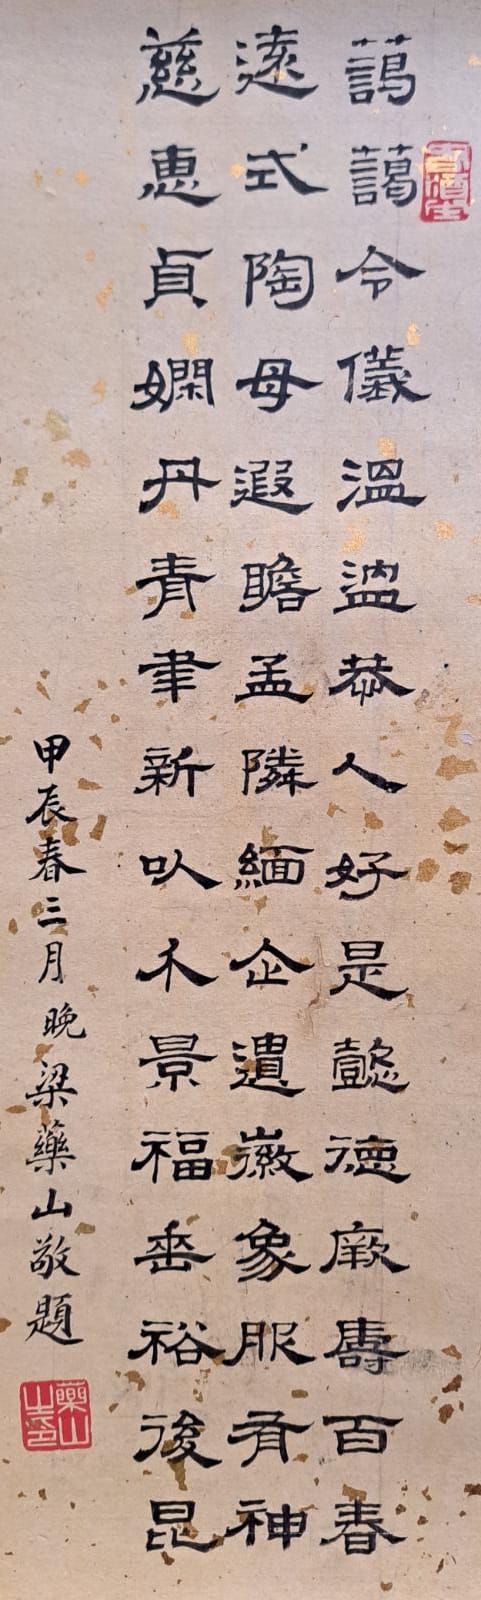 藹藹令儀溫溫恭人好是懿德厥壽百春
遠式陶母遐瞻孟隣緬企遺徽象服有神
慈惠貞嫻丹青聿新以介景福垂裕後昆
甲辰春三月晚梁藥山敬題
藥山之印